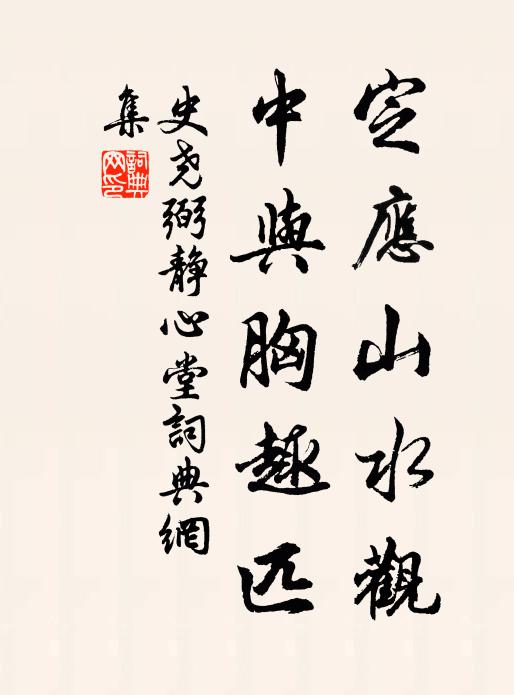 定應山水觀
中與胸趣匹
史堯弼靜心堂詞典網
集
詞典網印